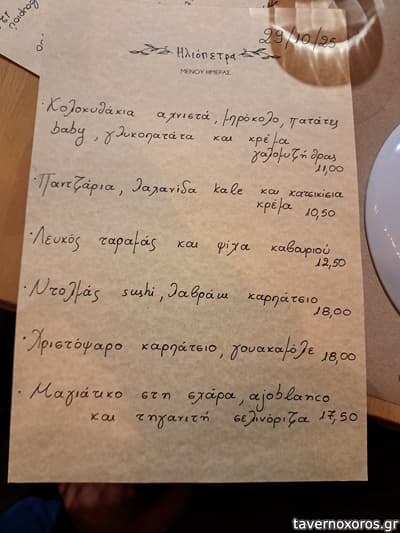 29/10/25
Ηλιόπετρα
ΜΕΝΟΥ ΗΜΕΡΑΣ
· Κολοκυθάκια αχνιστά, μπρόκολο, πατάτες
baby, γλυκοπατάτα και κρέμα
γαλομυζήθρας
11,00
· Παντζάρια, λαχανίδα kale και κατσικίσια
κρέμα 10,50
· Λευκός ταραμάς και ψίχα καβουριού
12,50
· Ντολμάς sushi, λαβράκι καρπάτσιο
18,00
· Χριστόψαρο καρπάτσιο, γουακαμόλε 18,00
· Μαγιάτικο στη σχάρα, ajoblanco
και τηγανιτή σελινόριζα 17,50
tavernoxoros.gr